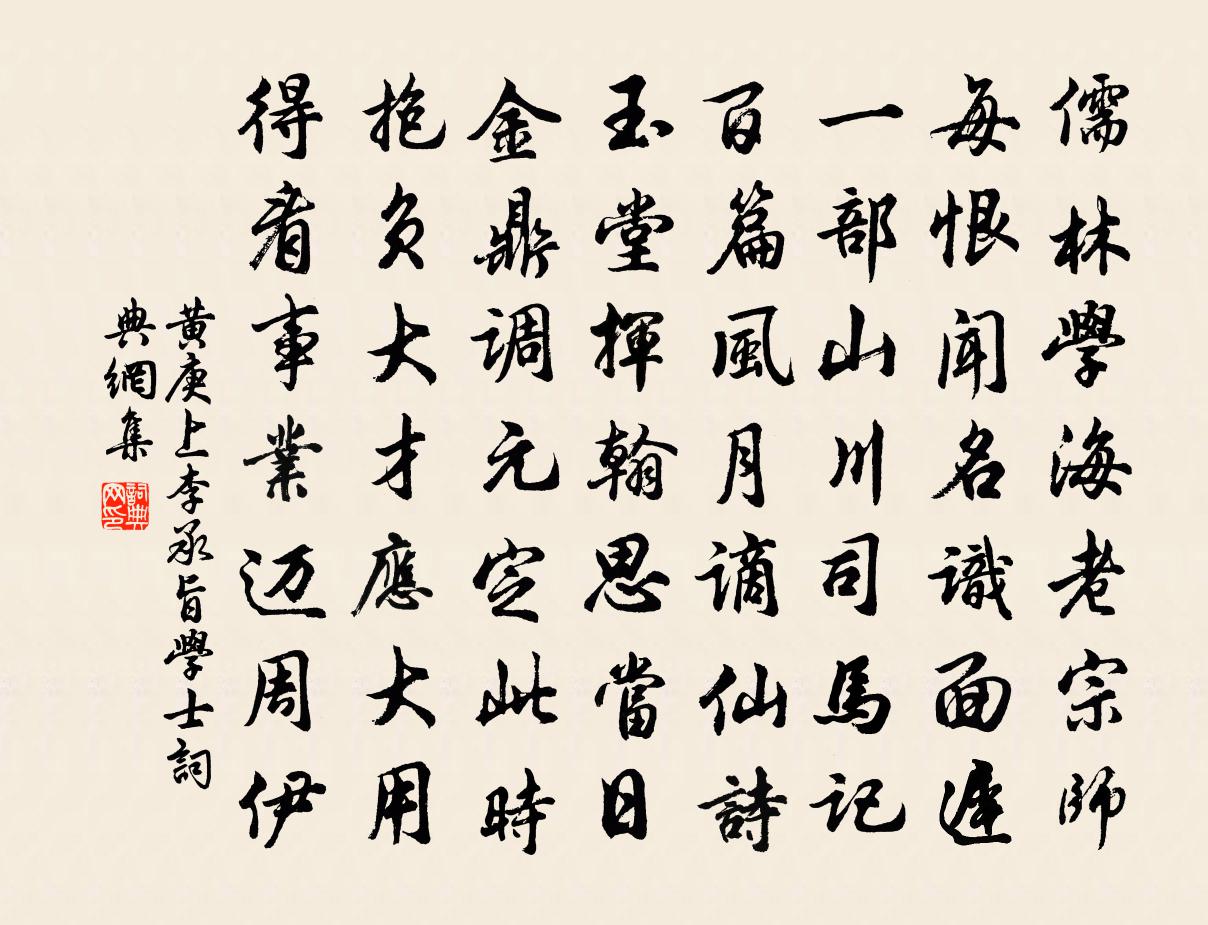 儒林學海老宗師
每恨聞名識面遲
一部山川司馬記
百篇風月谪仙詩
玉堂揮翰思當日
金鼎调元定此時
抱负大才應大用
得看事業迈周伊
黄庚上李承旨學士詞
典網集
詞典
网印